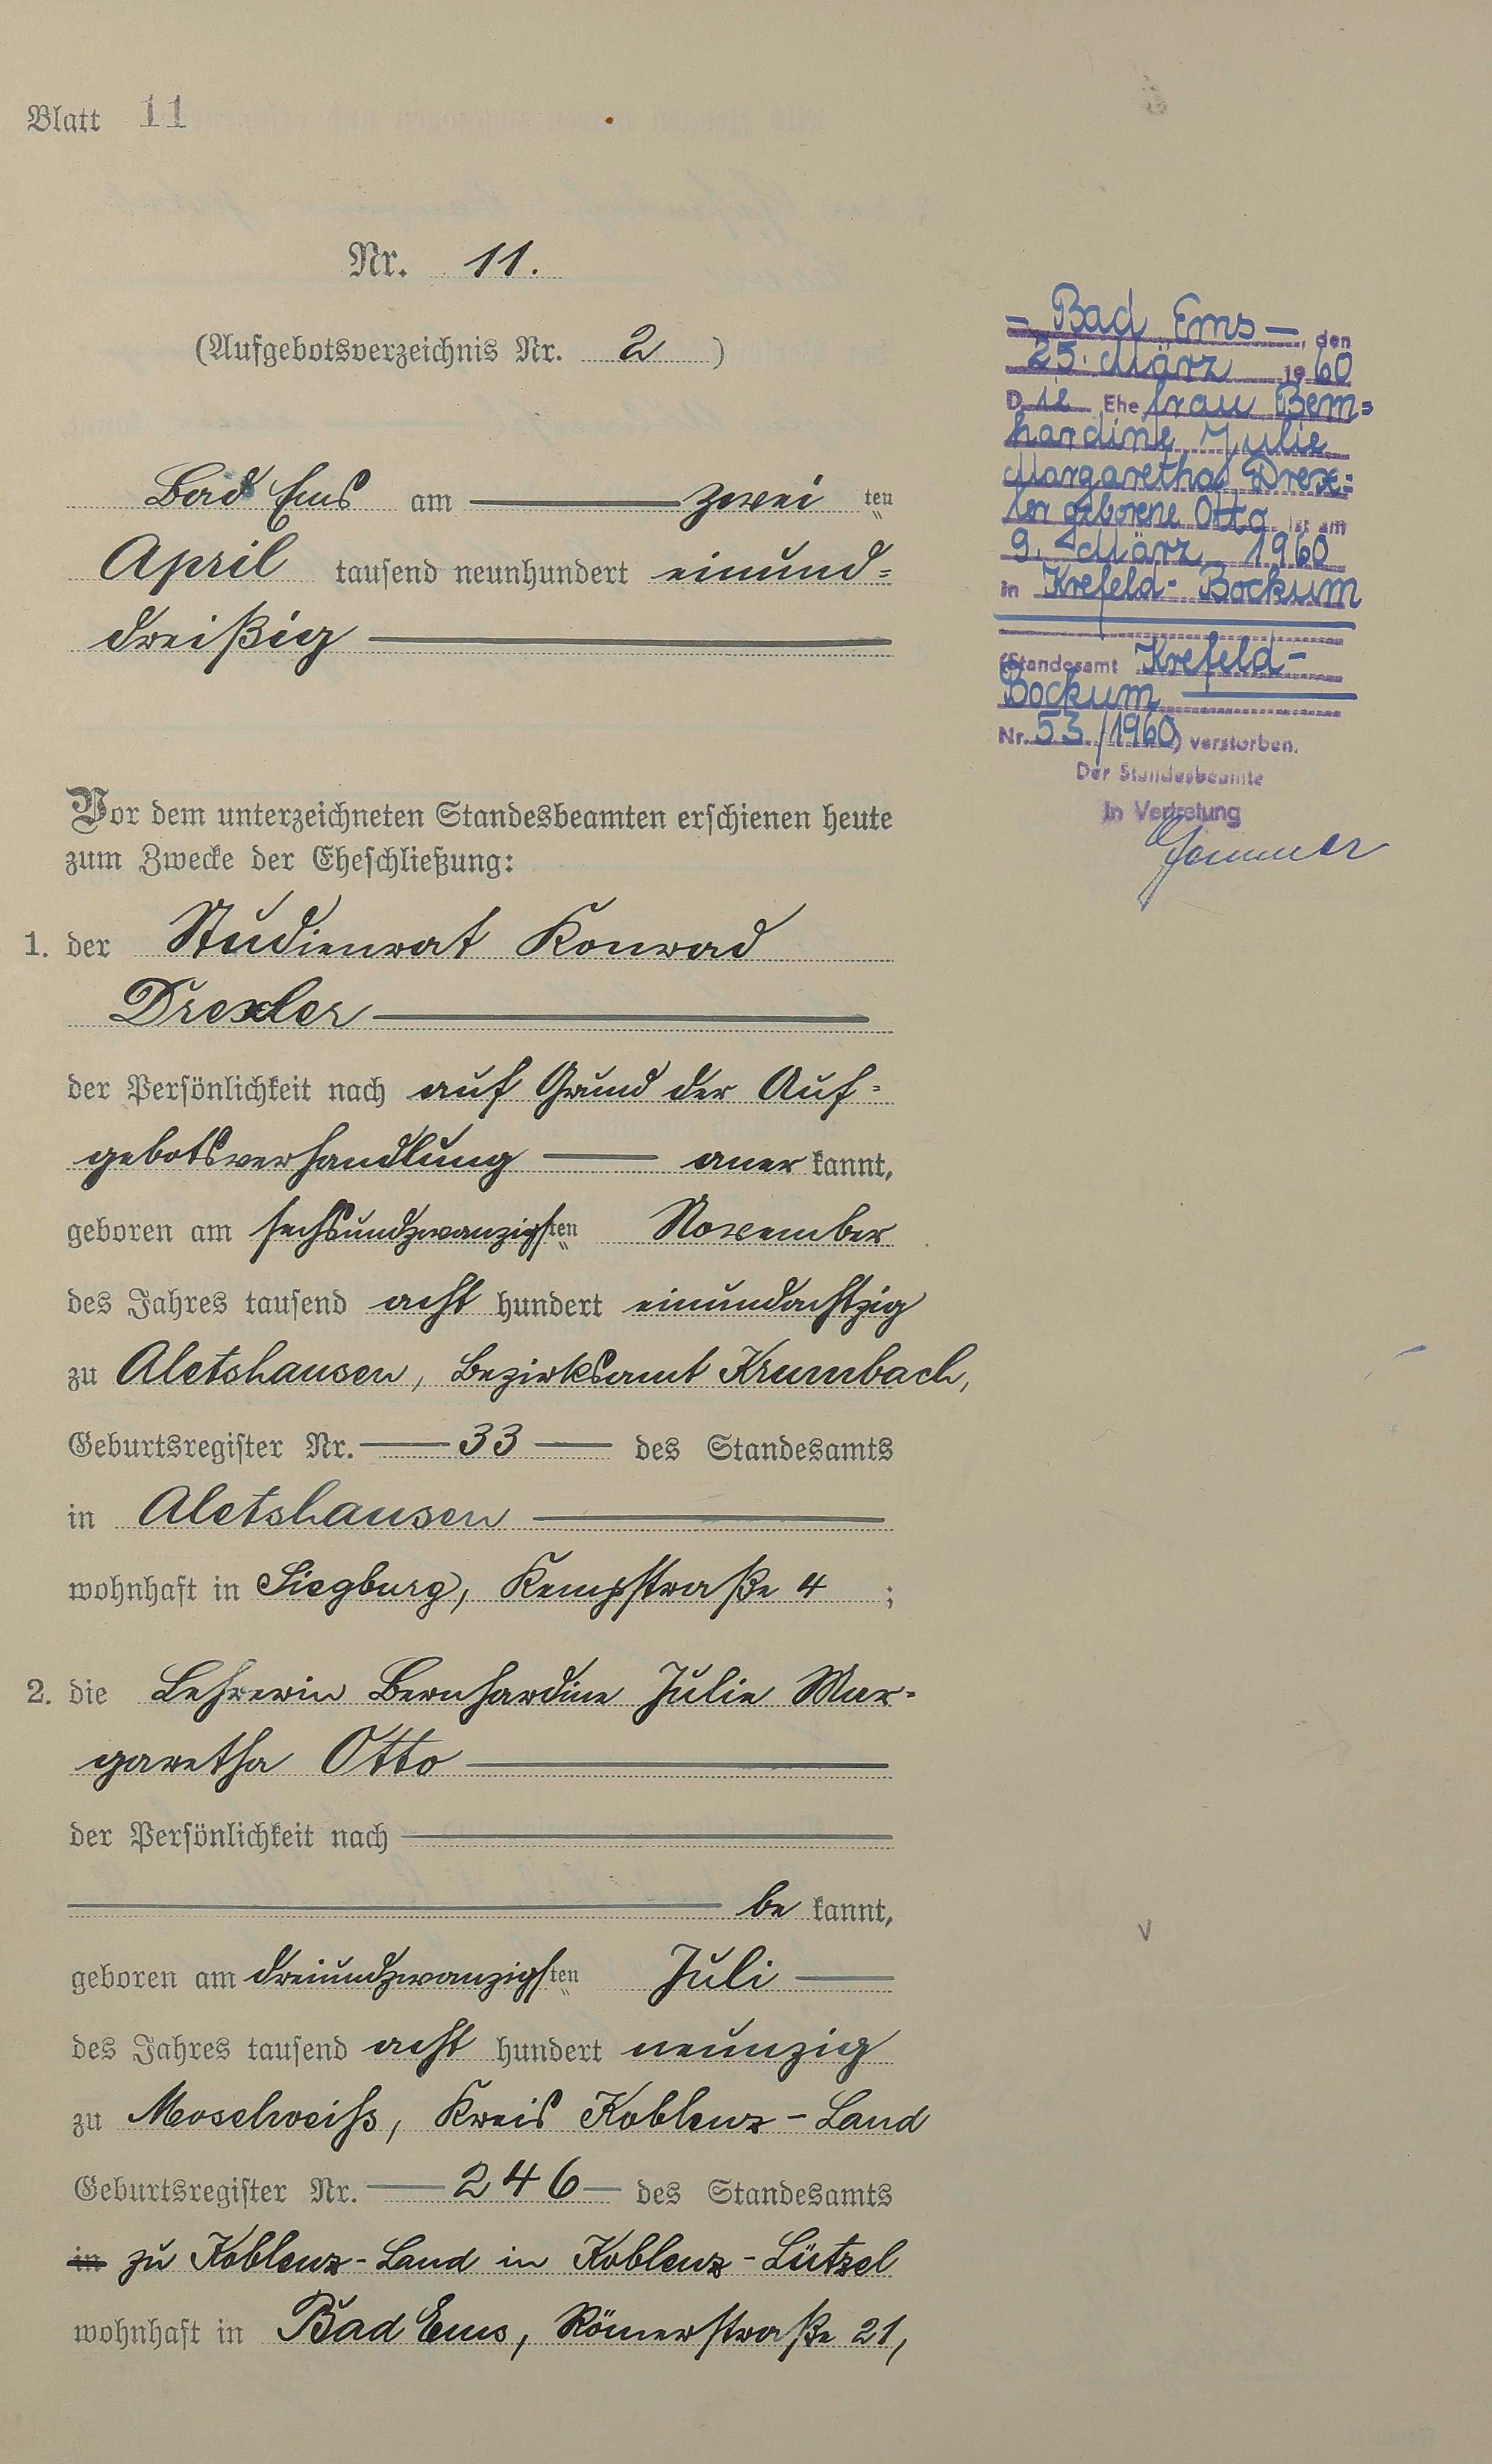 Blatt 11
Nr. 11.
(Aufgebotsverzeichnis Nr. 2)
Bad Ems am zwei ten
April tausend neunhundert einund=
dreißig
Vor dem unterzeichneten Standesbeamten erschienen heute
zum Zwecke der Eheschließung:
1. der Studienrat Konrad
Drexler
der Persönlichkeit nach auf Grund der Auf=
gebotsverhandlung aner kannt,
geboren am sechsundzwanzigsten November
des Jahres tausend acht hundert einundachtzig
zu Aletshausen, Bezirksamt Krumbach,
Geburtsregister Nr. 33 des Standesamts
in Aletshausen
wohnhaft in Siegburg, Kempstraße 4 ;
2. die Lehrerin Bernhardine Julie Mar=
garetha Otto
der Persönlichkeit nach
be kannt,
geboren am dreiundzwanzigsten Juli
des Jahres tausend acht hundert neunzig
zu Moselweiß, Kreis Koblenz-Land
Geburtsregister Nr. 246 des Standesamts
in zu Koblenz-Land in Koblenz-Lützel
wohnhaft in Bad Ems, Römerstraße 21,
- Bad Ems -, den
25. März 1960
Die Ehefrau Bern=
hardine Julie
Margaretha Drex=
ler geborene Otto ist am
9. März 1960
in Krefeld-Bockum
(Standesamt Krefeld-
Bockum
Nr. 53/1960) verstorben.
Der Standesbeamte
In Vertretung